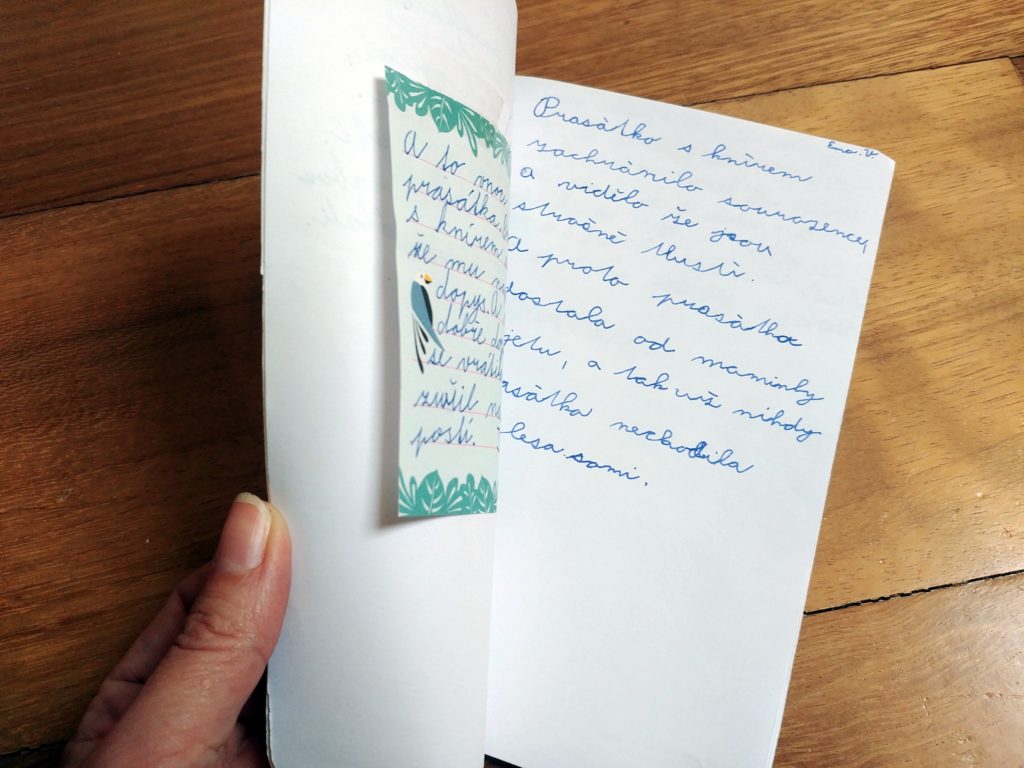 A to
prasátka,
s knírem
že mu
dopys. A
dobře
se
zvážil
postí.
Ema. V.
Prasátko s knírem
zachránilo sourozency
a vidělo že jsou
strašně tlustí.
A proto prasátka
dostala od maminky
, a tak už nihdy
nechodila
lesa sami.